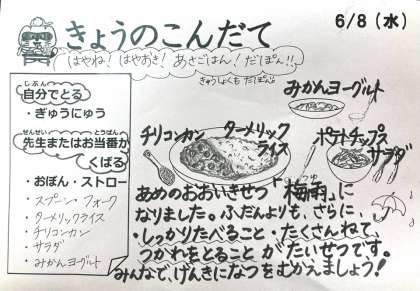 きょうのこんだて
6/8（水）
はやね！はやおき！あさごはん！だぽん！！
きゅうしょくも だぽん
じぶん
自分でとる
・ぎゅうにゅう
せんせい とうばん
先生またはお当番が
くばる
・おぼん・ストロー
・スプーン・フォーク
・ターメリックライス
・チリコンカン
・サラダ
・みかんヨーグルト
みかんヨーグルト
チリコンカン
ターメリック
ライス
ポテトチップス
サラダ
つゆ
あめのおおいきせつ「梅雨」に
なりました。ふだんよりも、さらに、
・しっかりたべること・たくさんねて、
つかれをとること がたいせつです。
みんなで、げんきになつをむかえましょう！